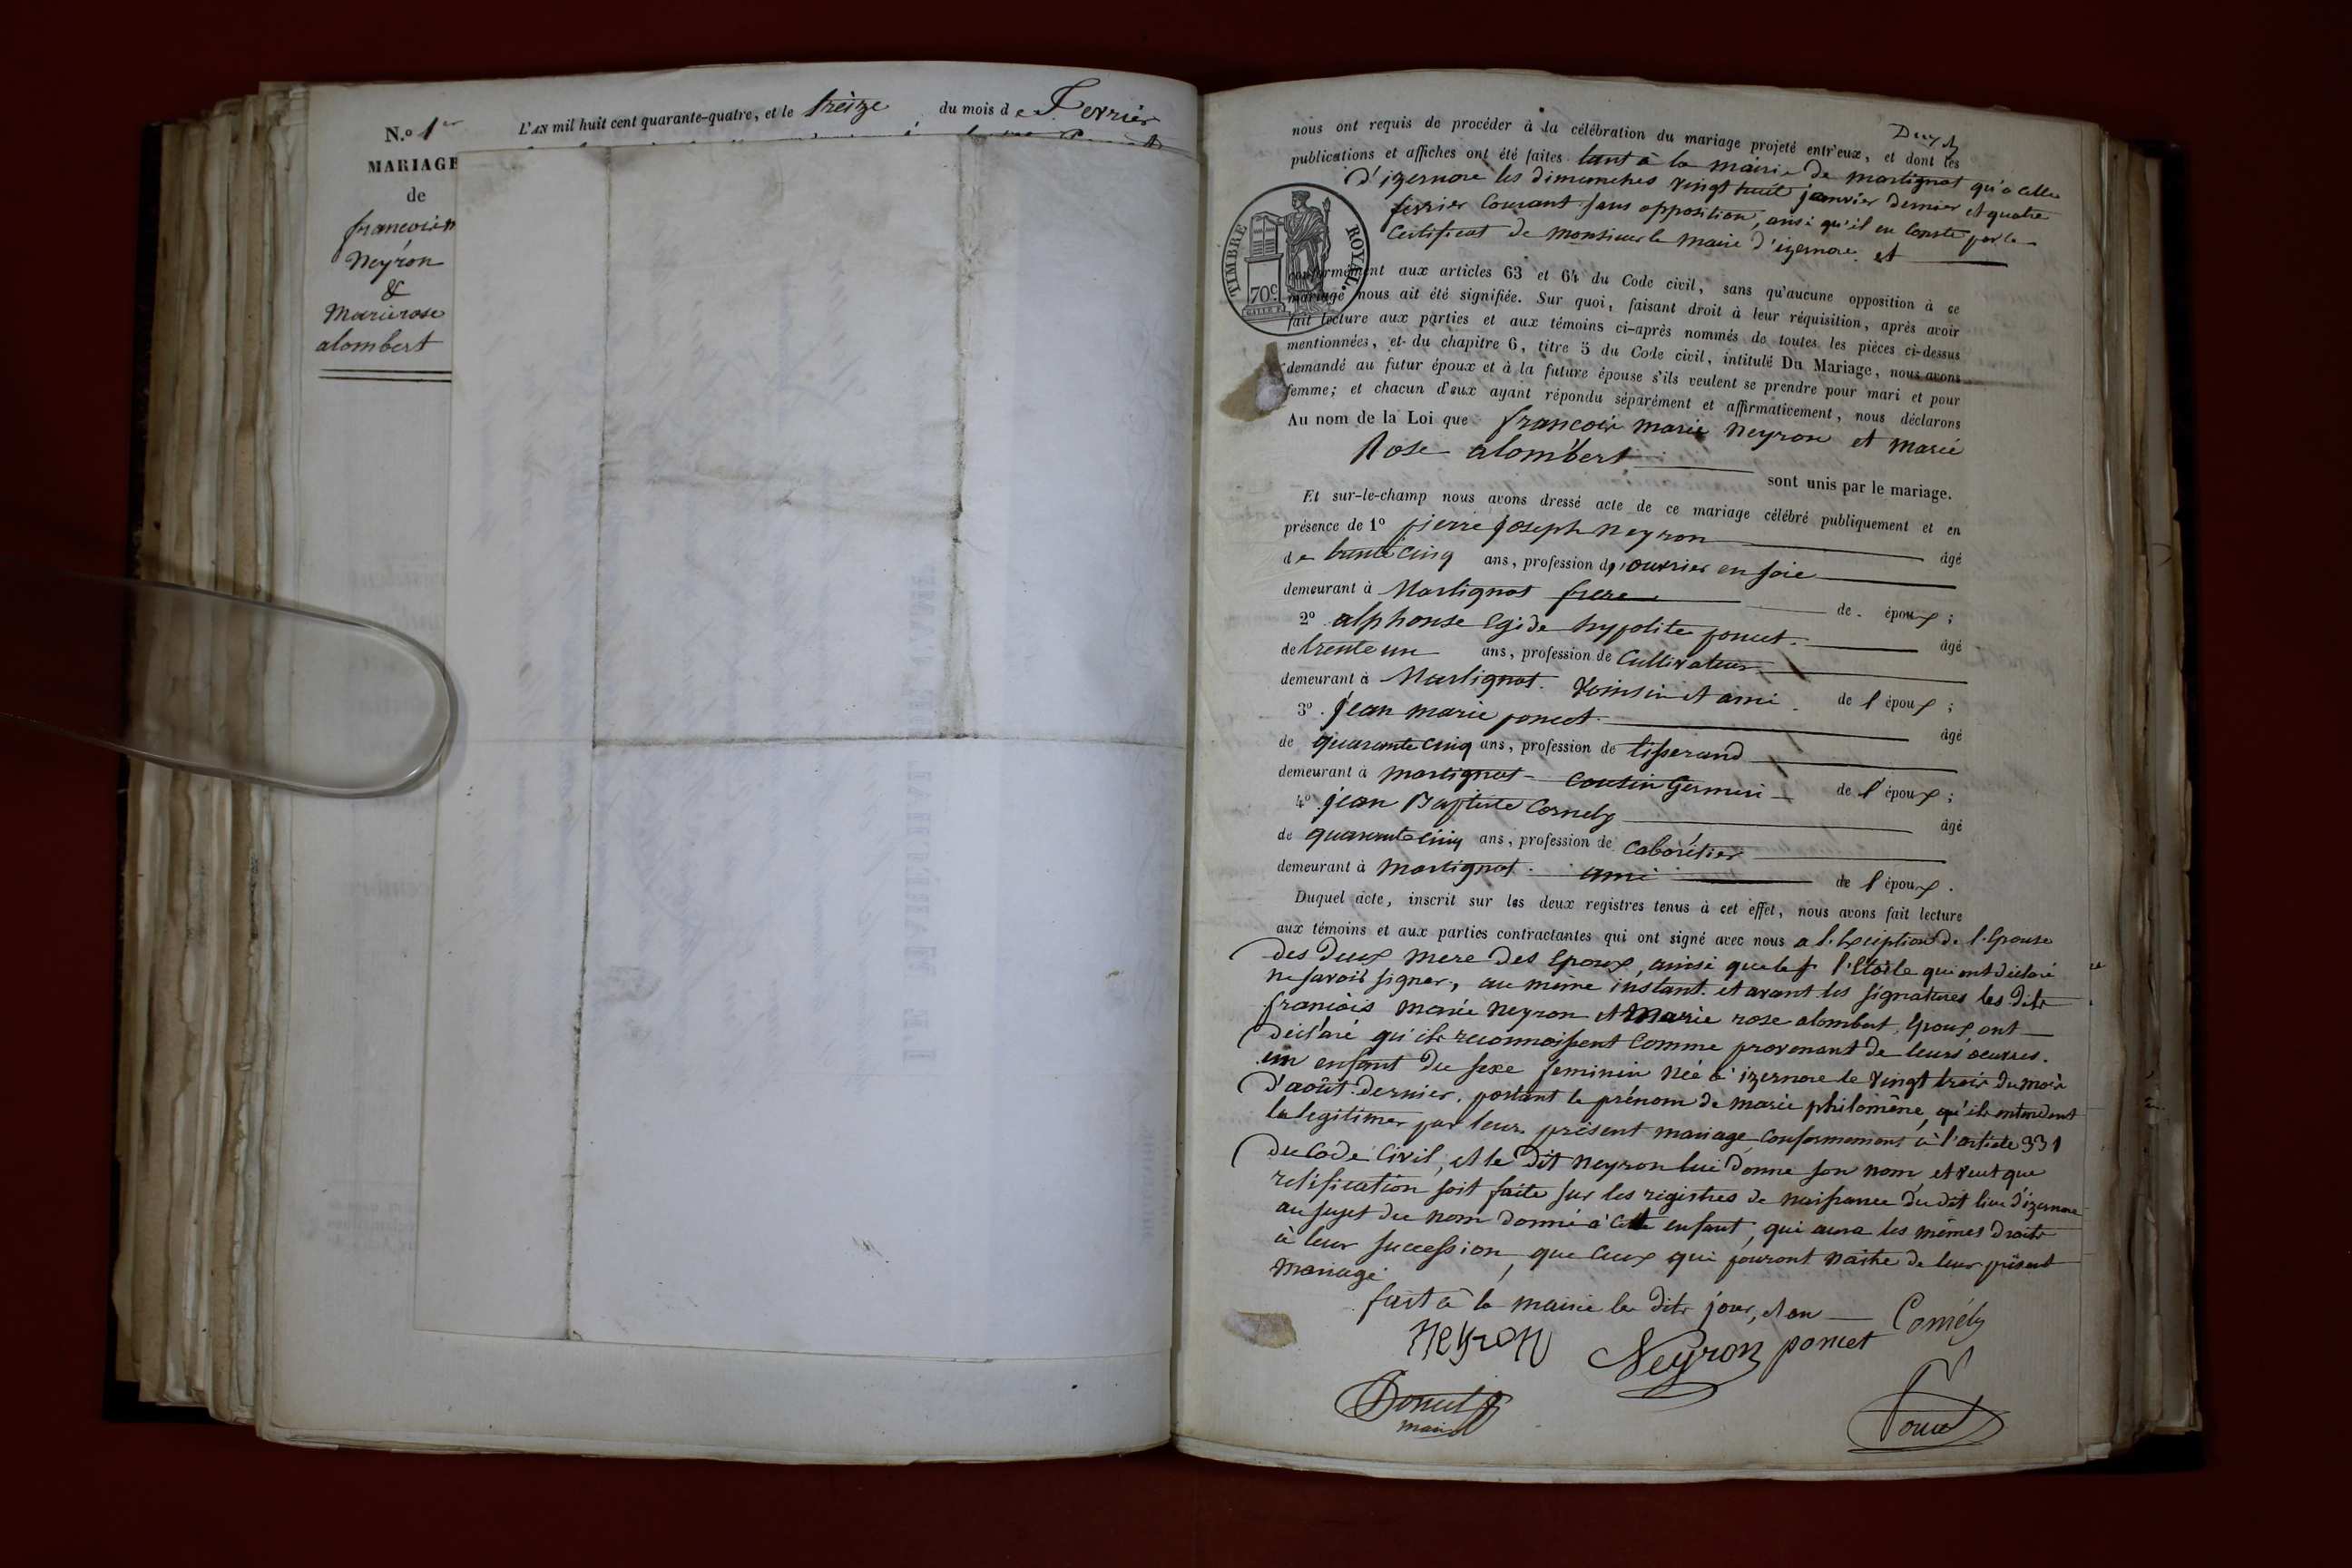 N.º 1er
MARIAGE
de
francois m
Neyron
&
Marie rose
alombert
L'AN mil huit cent quarante-quatre, et le treize du mois de Fevrier
nous ont requis de procéder à la célébration du mariage projeté entr'eux, et dont les
publications et affiches ont été faites tant à la mairie de martignat qu'a celle
d'izernore les dimanches vingt huit janvier dernier et quatre
fevrier Courant sans opposition, ainsi qu'il en conste par le
Certificat de monsieur le maire d'izernore. et
conformément aux articles 63 et 64 du Code civil, sans qu'aucune opposition à ce
mariage nous ait été signifiée. Sur quoi, faisant droit à leur réquisition, après avoir
fait lecture aux parties et aux témoins ci-après nommés de toutes les pièces ci-dessus
mentionnées, et du chapitre 6, titre 5 du Code civil, intitulé Du Mariage, nous avons
demandé au futur époux et à la future épouse s'ils veulent se prendre pour mari et pour
femme; et chacun d'eux ayant répondu séparément et affirmativement, nous déclarons
Au nom de la Loi que francois marie Neyron et marie
Rose alombert
sont unis par le mariage.
Et sur-le-champ nous avons dressé acte de ce mariage célébré publiquement et en
présence de 1º pierre joseph neyron âgé
de trente cinq ans, profession d' ouvrier en soie
demeurant à Martignat frere de époux;
2º alphonse Egide hypolite poncet âgé
de trente un ans, profession de Cultivateur
demeurant à Martignat. Voinsin et ami de l'époux;
3º jean marie poncet âgé
de quarante cinq ans, profession de tisserand
demeurant à martignat - Cousin Germain de l'époux;
4º jean Baptiste Cornely âgé
de quarante cinq ans, profession de cabarétier
demeurant à martignat. ami de l'époux.
Duquel acte, inscrit sur les deux registres tenus à cet effet, nous avons fait lecture
aux témoins et aux parties contractantes qui ont signé avec nous a l'Exception de l'Epouse
des deux mere des Epoux, ainsi que le qui ont déclaré
ne savoir signer, au même instant. et avant les signatures les dits
francois marie neyron et Marie rose alombert, Epoux ont
déclaré qu'ils reconnaissent comme provenant de leurs oeuvres.
un enfant du sexe feminin née à izernore le vingt trois du mois
d'août dernier. portant le prénom de marie philomène, qu'ils entendent
la legitimer par leur présent mariage conformement à l'article 331
du Code Civil, et le dit neyron lui donne son nom et veut que
retification soit faite sur les registres de naissance du dit lieu d'izernore
au sujet du nom donné à cette enfant, qui aura les mêmes droits
à leur succession, que ceux qui pouront naitre de leur présent
mariage
fait à la mairie les dits jour, et an
Cornély
Neyron Neyron poncet
Poncet
maire
Poncet
TIMBRE ROYAL
70c